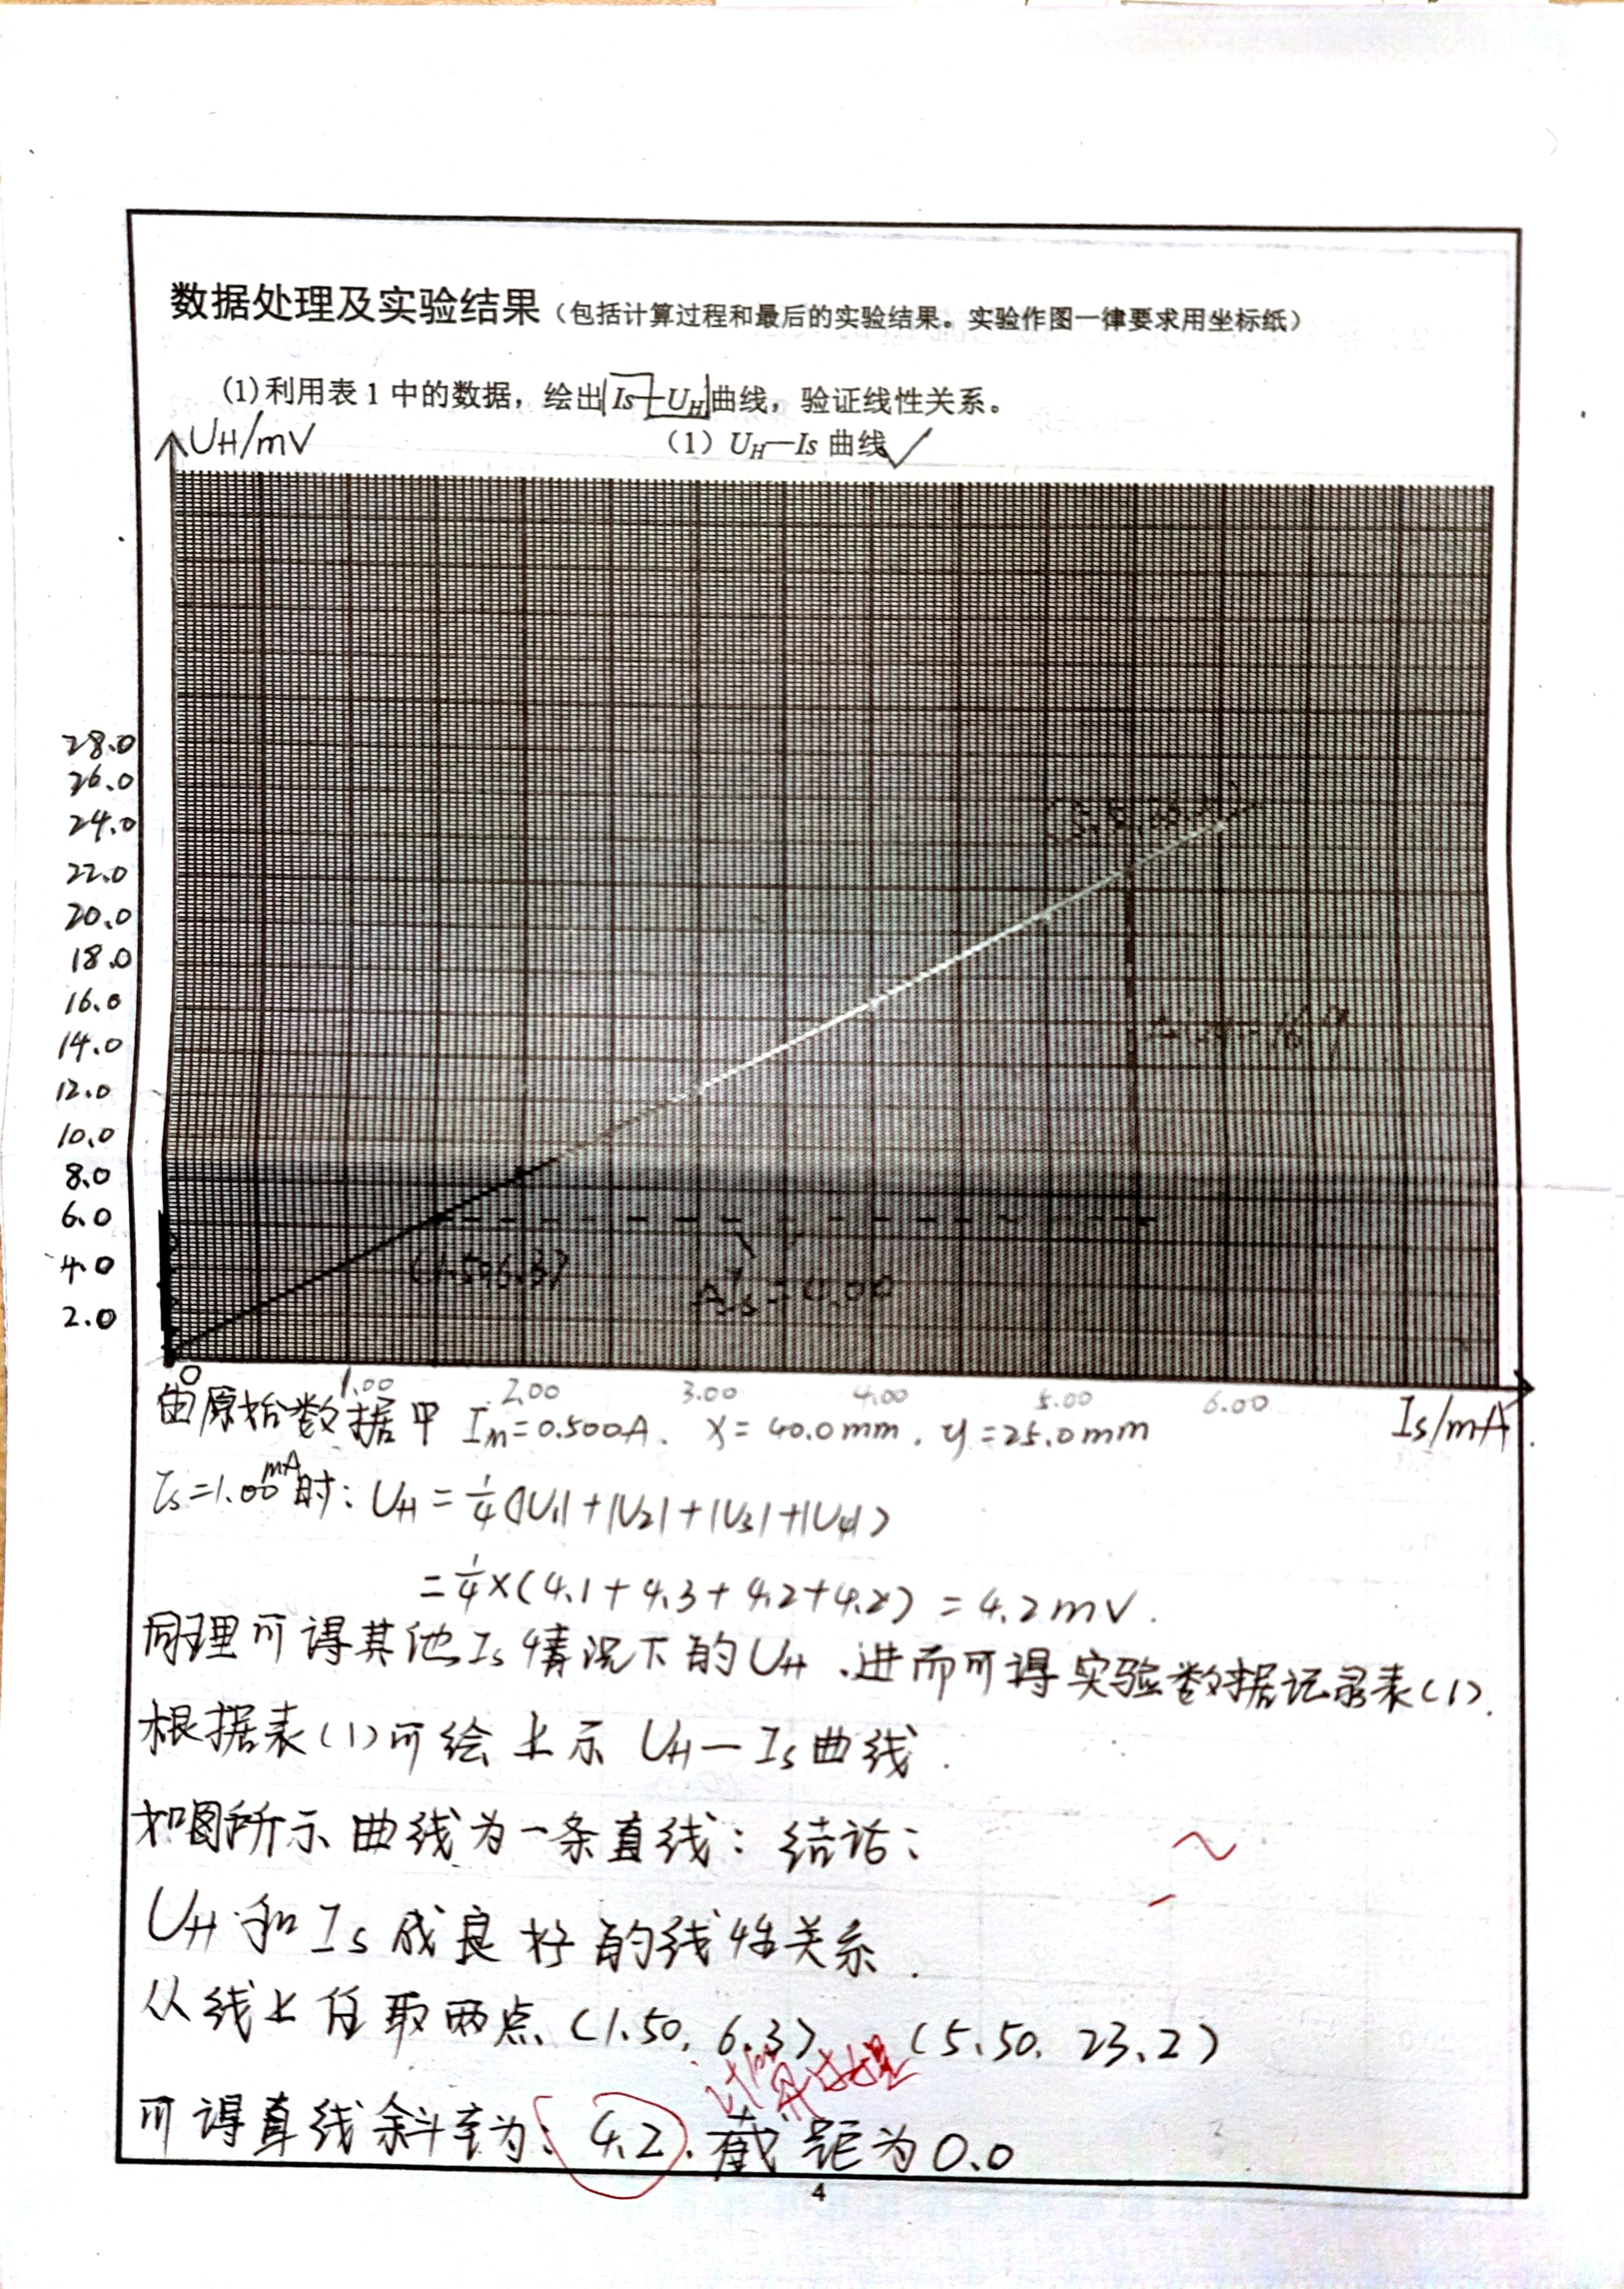 数据处理及实验结果（包括计算过程和最后的实验结果。实验作图一律要求用坐标纸）
(1)利用表 1 中的数据，绘出Is—UH曲线，验证线性关系。
UH/mV
（1）UH—Is 曲线
28.0
26.0
24.0
22.0
20.0
18.0
16.0
14.0
12.0
10.0
8.0
6.0
4.0
2.0
(1.50,6.3)
0
1.00 2.00 3.00 4.00 5.00 6.00
Is/mA
由原始数据甲 IM=0.500A. X=40.0mm, y=25.0mm
Is=1.00mA时: UH=1/4(|U1|+|V2|+|V3|+|V4|)
=1/4×(4.1+4.3+4.2+4.2)=4.2mV.
同理可得其他Is情况下的UH.进而可得实验数据记录表(1).
根据表(1)可绘上示 UH—Is曲线.
如图所示曲线为一条直线: 结话:
UH和Is成良好的线性关系.
从线上任取两点(1.50, 6.3) (5.50, 23.2)
计算过程
可得直线斜率为: 4.2. 截距为0.0
4